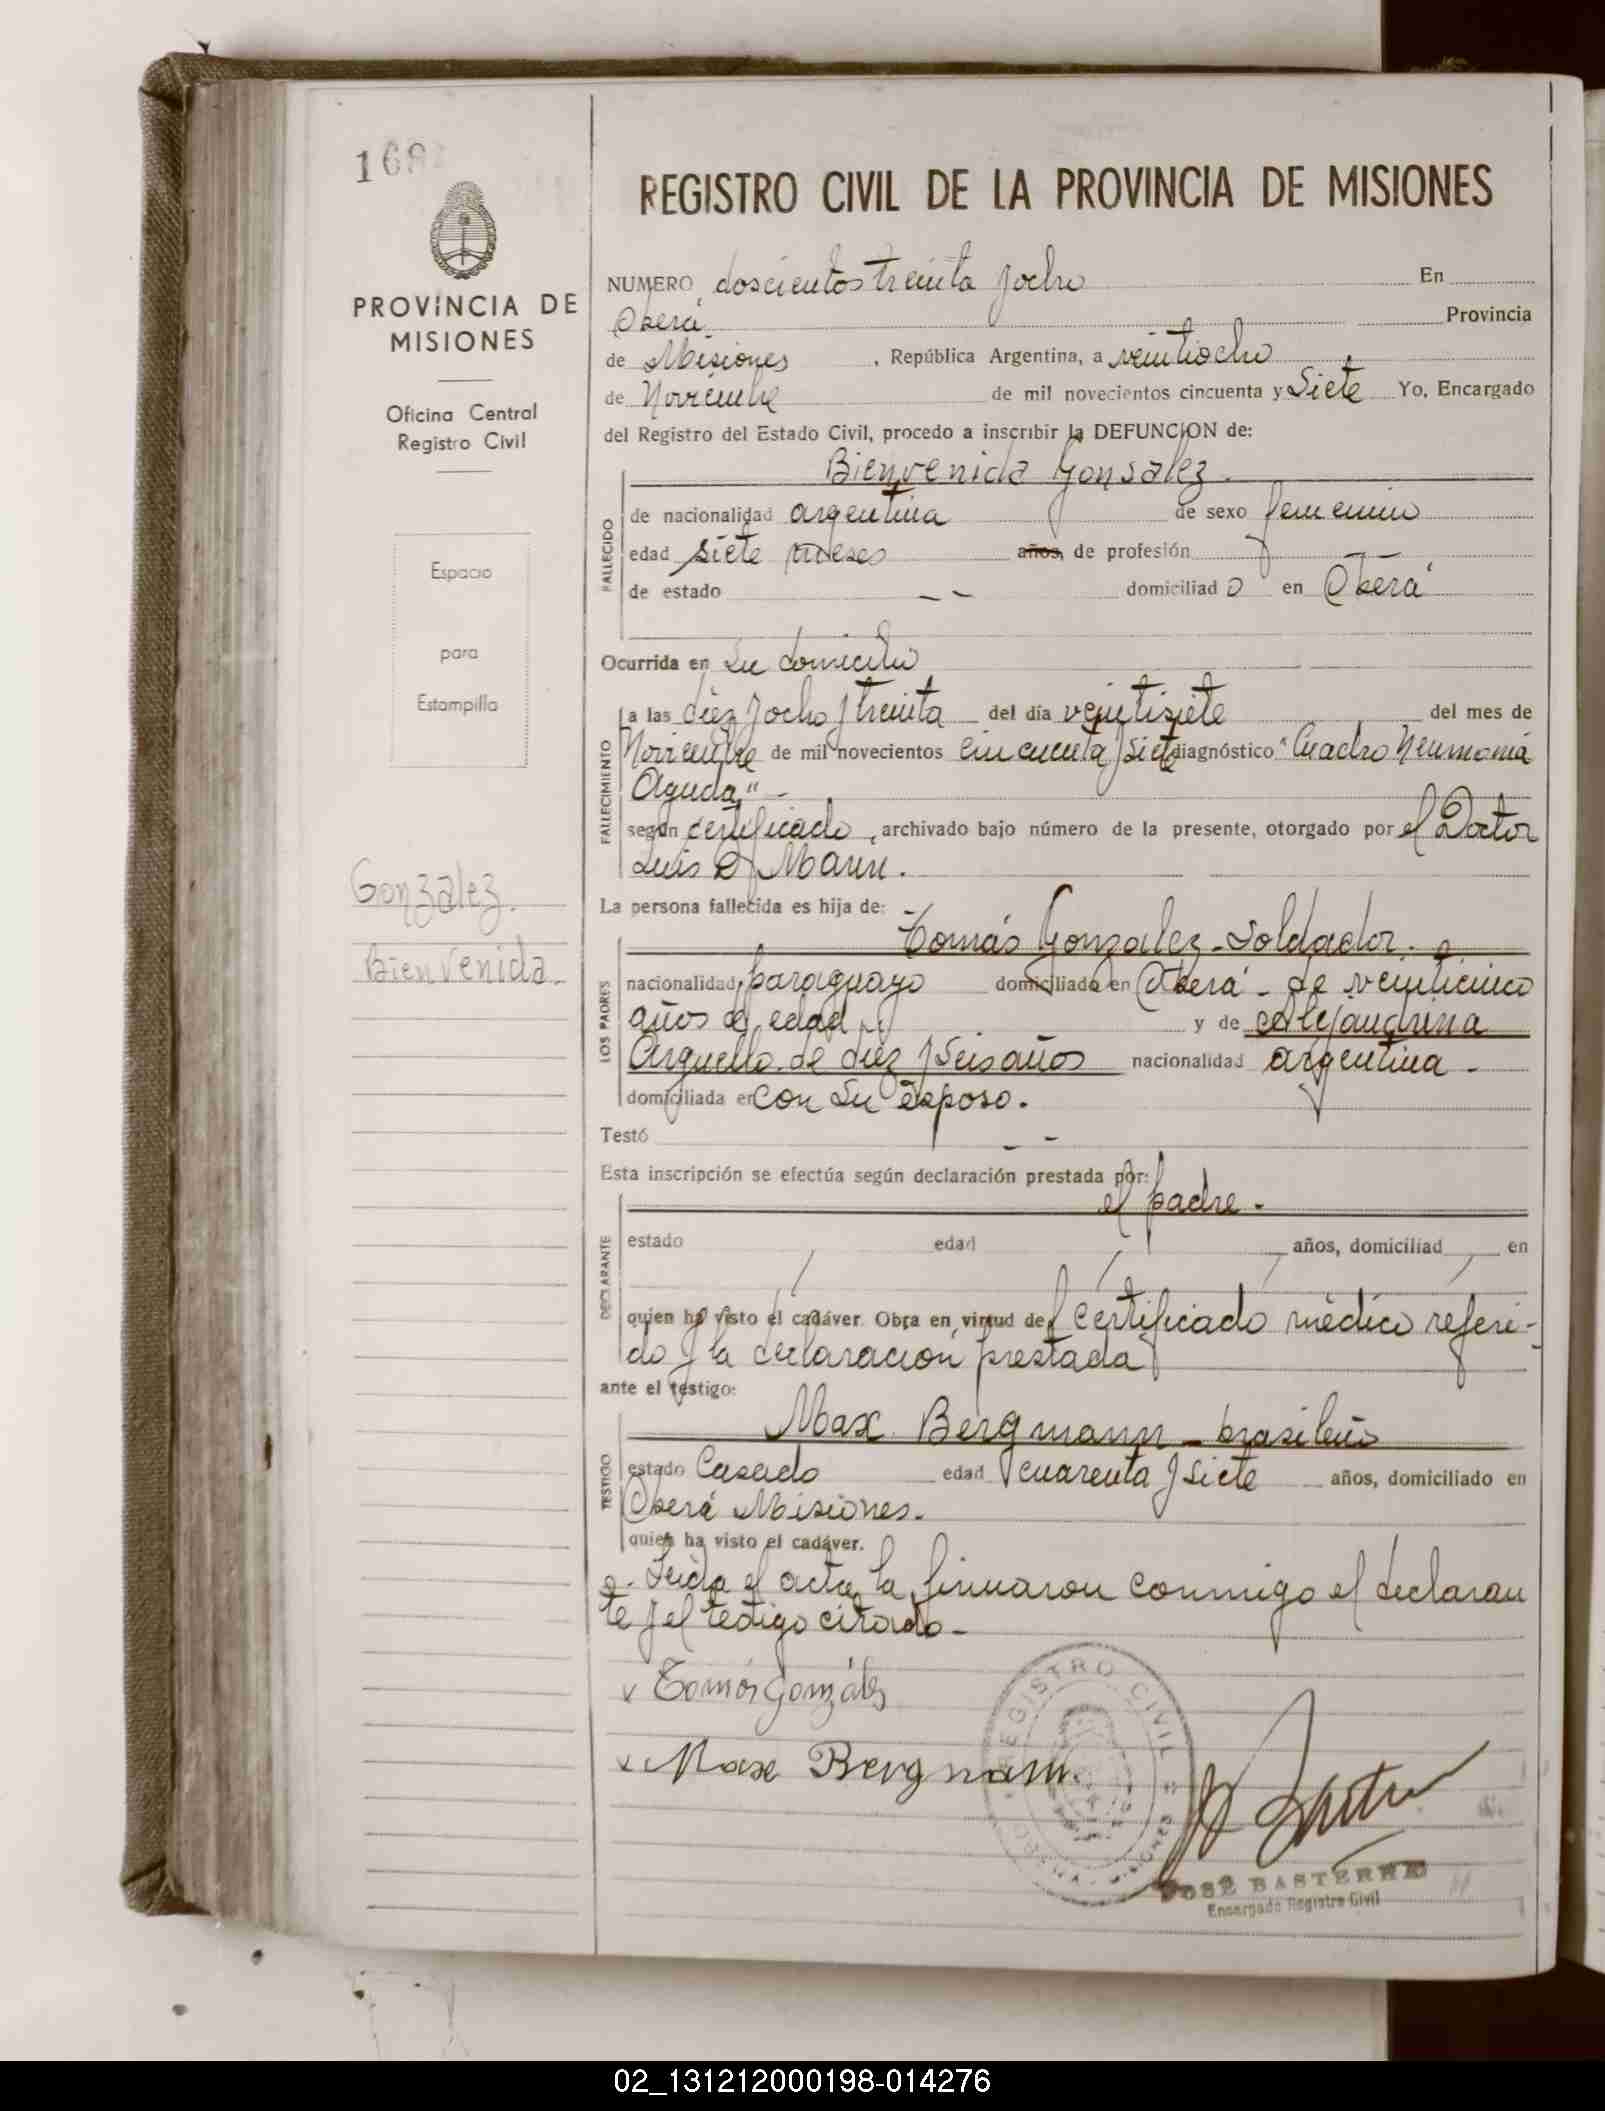 168
PROVINCIA DE
MISIONES
Oficina Central
Registro Civil
Espacio
para
Estampilla
González.
Bienvenida.
REGISTRO CIVIL DE LA PROVINCIA DE MISIONES
NUMERO doscientos treinta y ocho En
Oberá Provincia
de Misiones , República Argentina, a veintiocho
de Noviembre de mil novecientos cincuenta y Siete Yo, Encargado
del Registro del Estado Civil, procedo a inscribir la DEFUNCION de:
Bienvenida Gonsalez.
FALLECIDO
de nacionalidad argentina de sexo femenino
edad siete meses años, de profesión
de estado -- domiciliad o en Oberá
Ocurrida en Su domicilio
FALLECIMIENTO
a las diez y ocho y treinta del día veintisiete del mes de
Noviembre de mil novecientos cincuenta y siete diagnóstico "Cuadro Neumonia
Aguda" -
según certificado , archivado bajo número de la presente, otorgado por el Doctor
Luis D Marin.
La persona fallecida es hija de:
Tomás Gonzalez - Soldador.
LOS PADRES
nacionalidad paraguayo domiciliado en Oberá - de veinticinco
años de edad y de Alejandrina
Arguello. de diez y Seis años nacionalidad argentina -
domiciliada en con su esposo.
Testó --
Esta inscripción se efectúa según declaración prestada por:
el padre -
DECLARANTE
estado edad años, domiciliad en
quien ha visto el cadáver. Obra en virtud del certificado médico referi-
do y la declaración prestada
ante el testigo:
Max Bergmann - brasileño
TESTIGO
estado Casado edad cuarenta y Siete años, domiciliado en
Oberá Misiones.
quien ha visto el cadáver.
Leida el acta, la firmaron conmigo el declaran
te y el testigo citado -
x Tomás González
x Max Bergmann.
REGISTRO CIVIL
JOSÉ BASTERRE
Encargado Registro Civil
02_131212000198-014276